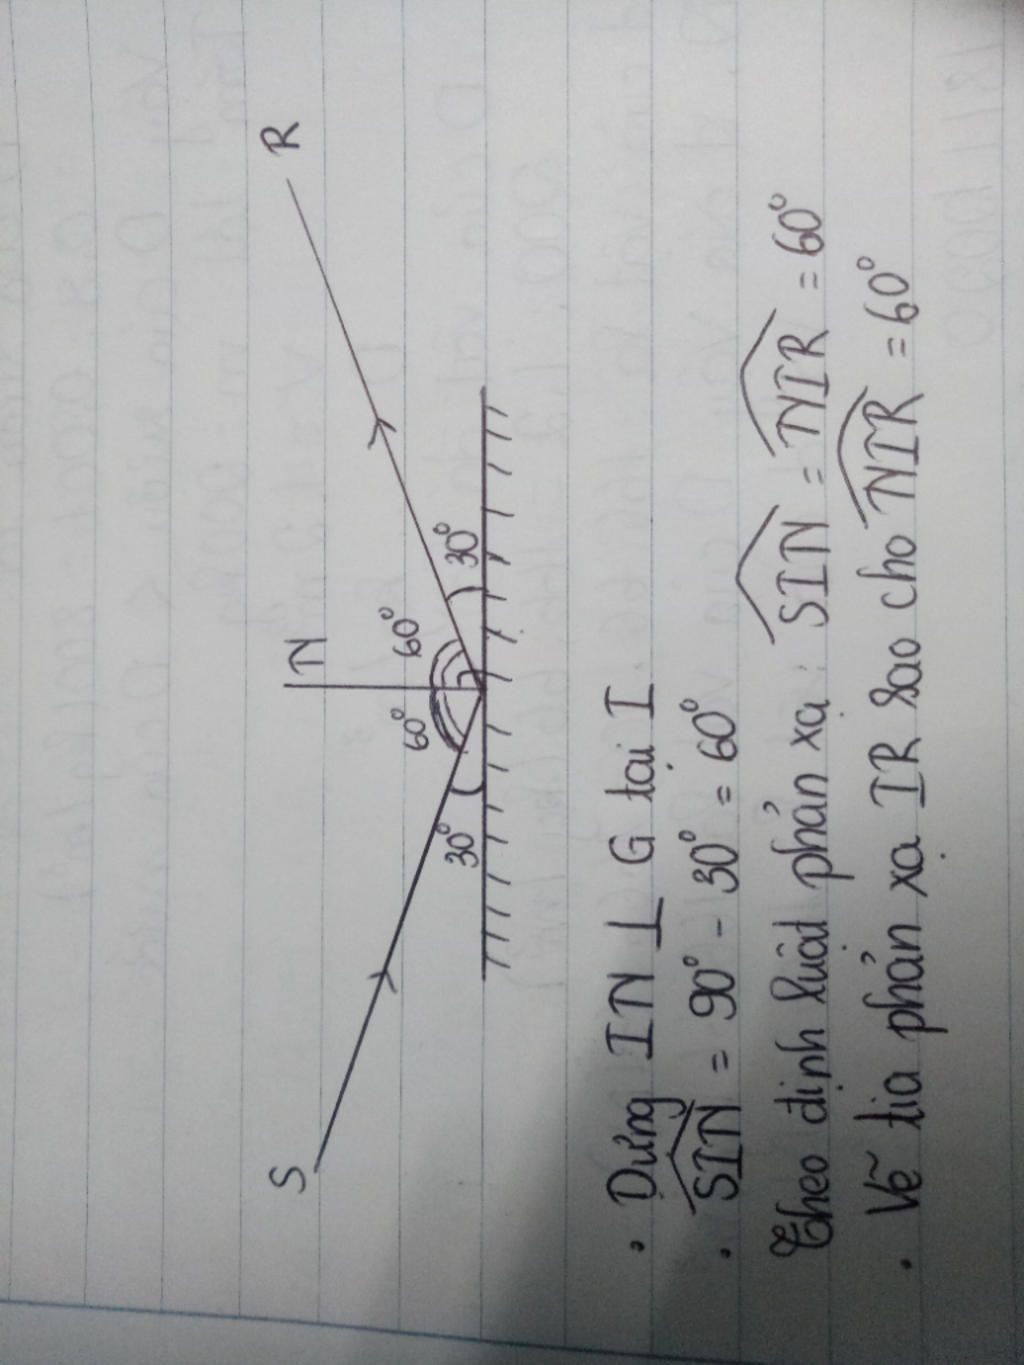 S
R
N
60°
60°
30°
30°
. Dựng IN ⊥ G tại I
. SIN = 90° - 30° = 60°
Theo định luật phản xạ : SIN = NIR = 60°
. Vẽ tia phản xạ IR sao cho NIR = 60°